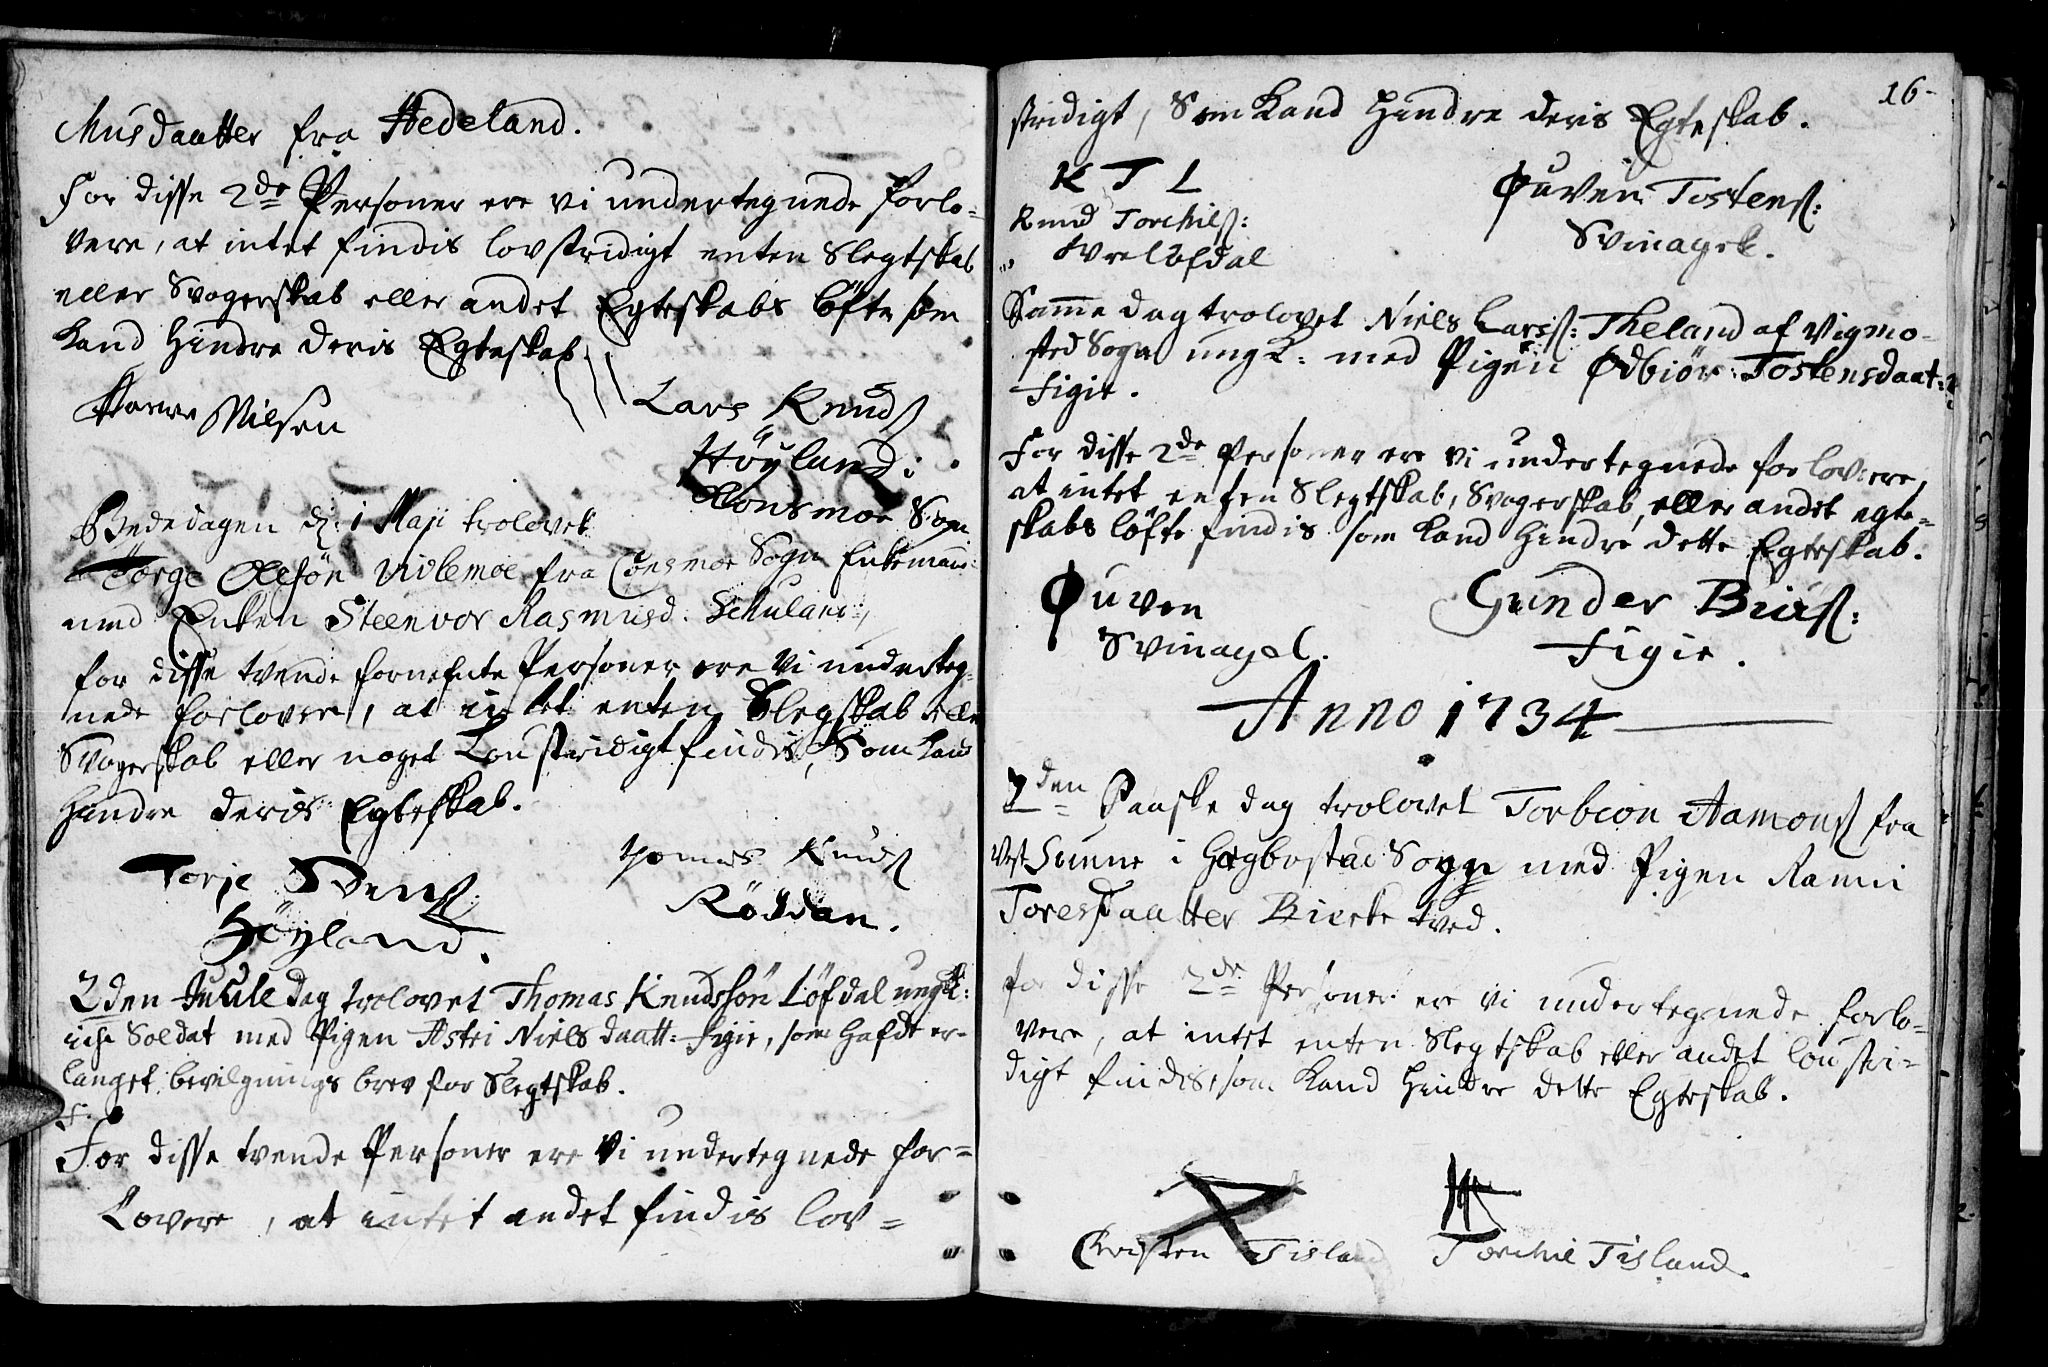 Musdaatter fra Hedeland.
For disse 2de Personer ere vi undertegnede forlo-
vere, at intet findis lovstridigt enten Slegtskab
eller Svogerskab eller andet Egteskabs löfte som
kand hindre deris Egteskab.
Nilsen
Lars Knuds
Höyland:
Konsmoe Sogn
Bededagen d: 1 Maji trolovet
Törge Olesön Vivlemoe fra Consmoe Sogn Enkemand
med Enken Steenvor Rasmusd. Schuland,
for disse tvende fornefnte Personer ere vi underteg-
nede forlover, at intet enten Slegskab eller
Svogerskab eller noget Loustridigt findis, Som kand
Hindre deris Egteskab.
Torje Svens
Höyland.
Thomas Knuds
Röddan.
2den Juule dag trolovet Thomas Knudssön Löfdal ungk:
iche Soldat med Pigen Astri Nielsdaatt: Figie, som hafde er-
langet bevilgnings brev for Slegtskab.
F.
For disse tvende Personer ere vi undertegnede for=
Lovere, at intet andet findis lov=
16-
stridigt, Som kand hindre deris Egteskab.
K T L
Knud Torchils:
Øvre Löfdal
Øuven Tostens:
Svinagel.
Samme dag trolovet Niels Larss: Theland af Vigmo-
sted Sogn ungk: med Pigen Ødbiör Tostensdaat:
Figie.
For disse 2de Personer ere vi undertegnede forlovere,
at intet enten Slegtskab, Svogerskab, eller andet egte=
skabs löfte findis som kand hindre dette Egteskab.
Øuven
Svinagel.
Gunder Biurs:
Figie.
Anno 1734
2den Paaske dag trolovet Torbiön Aamons fra
Vest Sunne i Hægbostad Sogn med Pigen Ranni
Toresdaatter Birketved.
for disse 2de Personer ere vi undertegnede forlo-
vere, at intet enten Slegtskab eller andet loustri-
digt findis, som kand hindre dette Egteskab.
Christen Tisland
Torchil Tisland.